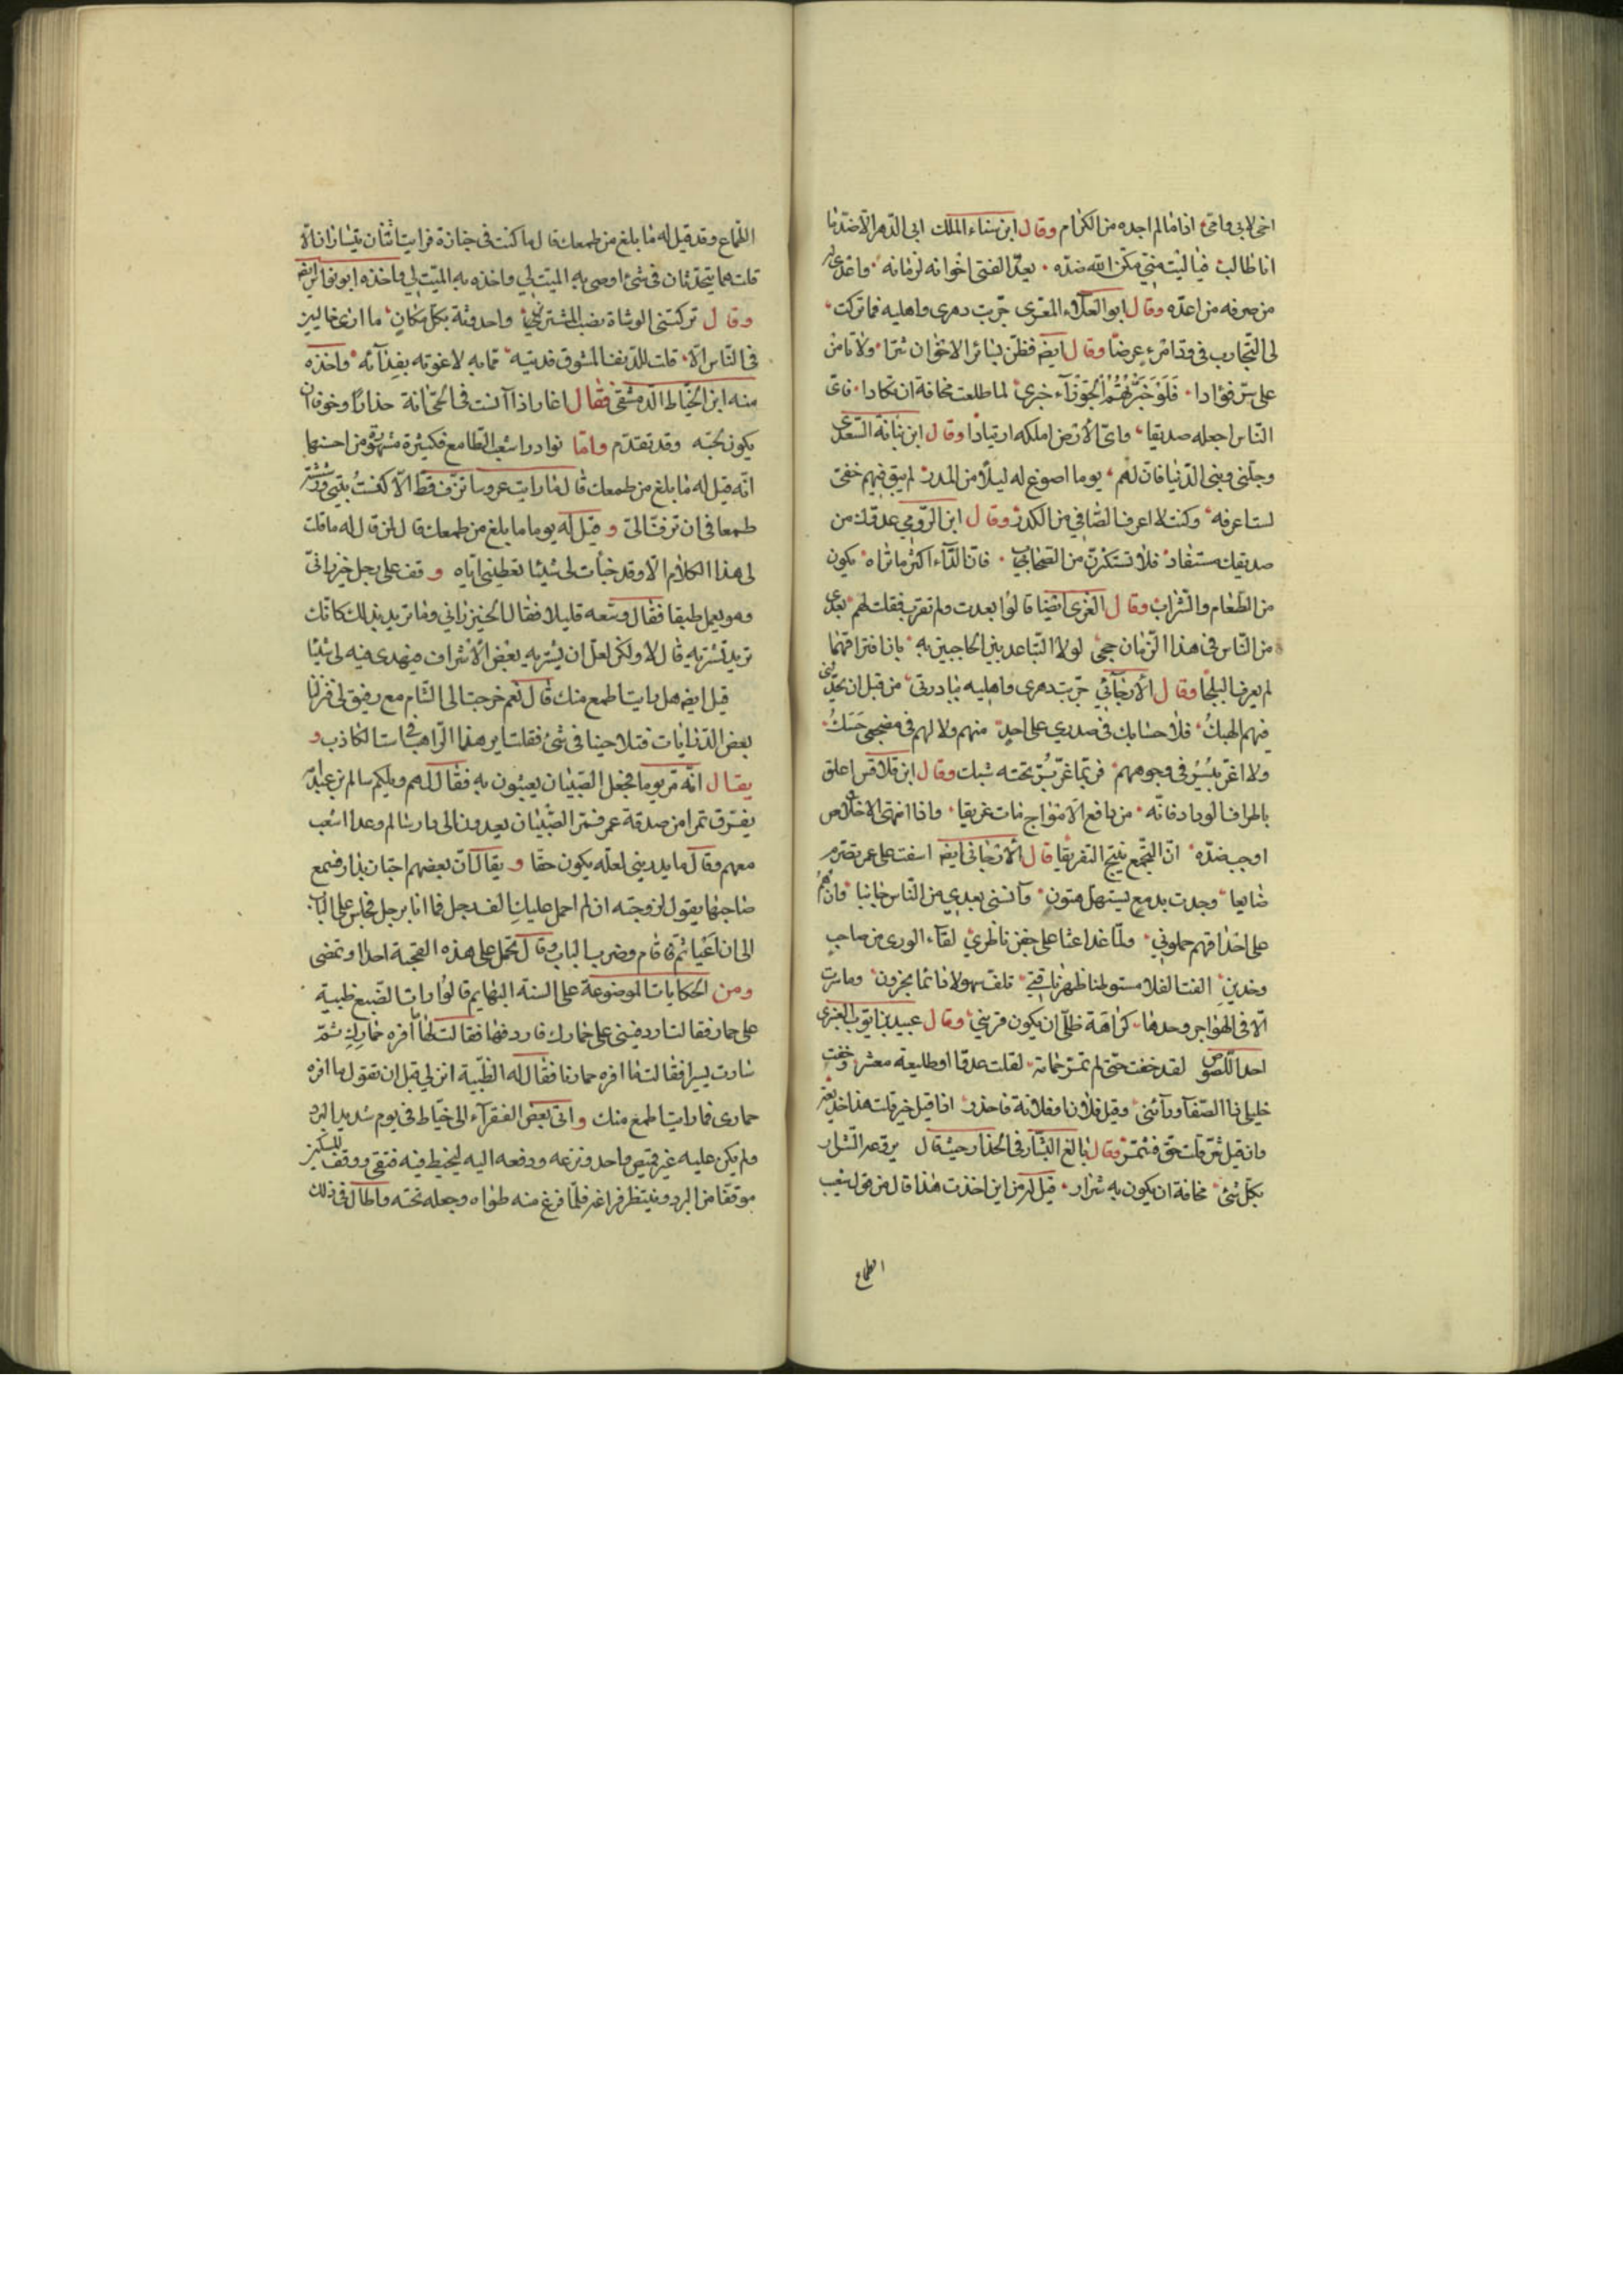 اخى لابى وامى اذا مالم اجده من الكرام وقال ابن سناء الملك ابى الدهر الا ضد ما
انا طالب فياليته منى مكن الله ضده يعد الفتى اخوانه لزمانه واعدى
من صرفه من اعده وقال ابو العلاء المعرى جربت دهرى واهليه فما تركت
لى التجارب فى ود امرء عرضا وقال ايضه فظن بسائر الاخوان شرا ولا تامن
على سر فؤادا فلو خبرتهم الجوزآء خبرى لما طلعت مخافة ان تكادا فاى
الناس اجعله صديقا واى الارض املكه ارتيادا وقال ابن نباتة السعدى
وجلنى وبنى الدنيا فان لهم يوما اصوغ له ليلا من المدر لم يبق فيهم خفى
لست اعرفه وكنت لا اعرف الصافي من الكدر وقال ابن الرومى عدوك من
صديقك مستفاد فلا تستكثرن من الصحاب فان الدآء اكثر ما تراه يكون
من الطعام والشراب وقال الغزى ايضا قالوا بعدت ولم تقرب فقلت لهم بعدى
من الناس فى هذا الزمان حجى لولا التباعد بين الحاجبين به بانا فتراقهما
لم يعرف البلجا وقال الارجآني جربت دهرى واهليه ببادرتى من قبل ان
فيهم الهبك فلا حسابك فى صدري على احد منهم ولا لهم فى مضجعى حسك
ولا اغر ببشر فى وجوههم فربما غر بر تحته شبك وقال ابن قلاقس اعلق
باطراف الوداد فانه من دافع الامواج مات غريقا واذا انتهى الاخلاص
اوجب ضده ان التجمع ينتج التفريقا قال الارجانى ايضه اسفت على عمر تصرم
ضايعا وجدت بدمع يستهل هتون وآنسنى بعدي من الناس جانبا وان هم
على احداقهم حملونى ولما غدا عبثا على جفن ناظري لقآء الورى من صاحب
وخدين الفت الفلا مستوطنا ظهر ناقتى تلف سهولا دائما بحزون وما سرت
الا فى الهواجر وحدها كراهة ظلى ان يكون قرينى وقال عبيد بن ايوب العنبرى
احد اللصوص لقد خفت حتى لم تمر حمامة لقلت عدو او طليعة معشر وخفت
خليلى ذا الصفا ورآئنى وقيل فلان او فلانة فاحذر اذا قيل خير قلت هذا خديعة
وان قيل شر قلت حق فشمر وقال بالغ البشار فى الحذار حيث قال يروعه السرار
بكل شئ مخافة ان يكون به سرار قيل له من اين اخذت هذا قال من قول اشعب
الطماع
الطماع وقد قيل له ما بلغ من طمعك قال ما كنت فى جنازة فرايت اثنان يتساران الا
قلت هما يتحدثان فى شئ اوصى به الميت لي واخذه به الميت لي واخذه ابو نواس ايضه
وقال تركتنى الوشاة نصب المشيرين واحدوثة بكل مكان ما ارى خاليين
فى الناس الا قلت
منه ابن الخياط الدمشقى فقال اغار اذا آنست فى الحى انة حذارا وخوفا ان
يكون لحبه وقد تقدم واما نوادر اشعب الطامع فكثيرة مشهورة من احسنها
انه قيل له ما بلغ من طمعك قال ما رايت عروسا تزف قط الا كنست بيتى ورششته
طمعا فى ان تزف الى وقيل له يوما ما بلغ من طمعك قال لمن قال له ما قلت
لى هذا الكلام الا وقد خبأت لى شيئا تعطينى اياه ووقف على رجل خيزرانى
وهو يعمل طبقا فقال وسعه قليلا فقال الخيزرانى وما تريد بذلك كانك
تريد تشتريه قال لا ولكن لعل ان يشتريه بعض الاشراف فيهدى فيه لى شيئا
قيل ايضه هل رايت اطمع منك قال نعم خرجت الى الشام مع رفيق لى فنزلنا
بعض الديرانيات فتلاحينا فى شئ فقلت اير هذا الراهب فى است الكاذب و
يقال انه مر يوما فجعل الصبيان يعبثون به فقال لهم ويلكم سالم بن عبد الله
يفرق تمرا من صدقة عمر فمر الصبيان يعدون الى دار سالم وعدا اشعب
معهم وقال ما يدرينى لعله يكون حقا ويقال ان بعضهم اجتاز بدار فسمع
صاحبها يقول لزوجته ان لم احمل عليك الف رجل فما انا برجل فجلس على الباب
الى ان اعيا ثم قام وضرب الباب وقال تحمل على هذه القحبة احدا او نمضى
ومن الحكايات الموضوعة على السنة البهايم قالوا رات الضبع ظبية
على حمار فقالت اردفينى على حمارك فاردفتها فقالت لها ما افره حمارك ثم
سارت يسيرا فقالت ما افره حمارنا فقال له الظبية انزلي قبل ان تقول ما افره
حمارى فما رايت اطمع منك واتى بعض الفقرآء الى خياط فى يوم شديد البرد
ولم يكن عليه غير قميص واحد ونزعه ودفعه اليه ليخيط فيه فتقى ووقف المسكين
موقفا من البرد وينتظر فراغه فلما فرغ منه طواه وجعله تحته واطال فى ذلك